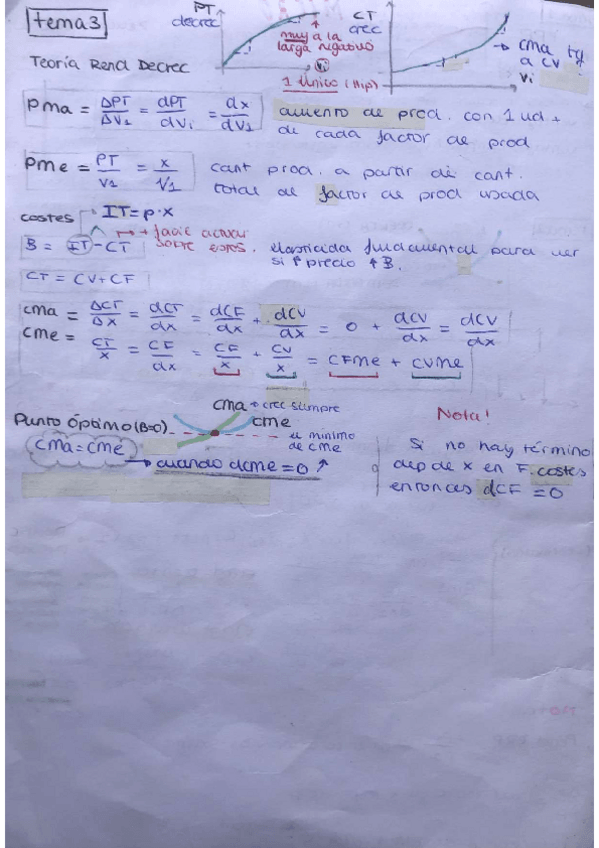 tema 3
PT
decrec
muy a la
larga negativo
Vi
1 único (Hip)
CT
crec
cma tg
a CV
Vi
Teoría Rend Decrec
Pma = ΔPT/ΔV1 = dPT/dVi = dx/dV1
aumento de prod. con 1 ud +
de cada factor de prod
Pme = PT/V1 = x/V1
cant prod. a partir de cant.
total de factor de prod usada
costes
IT = p·x
B = IT - CT
→ + facil actuar
sobre estos.
elasticida fundamental para ver
si ↑ precio ↑ B.
CT = CV + CF
cma = ΔCT/Δx = dCT/dx = dCF/dx + dCV/dx = 0 + dCV/dx = dCV/dx
cme = CT/x = CF/dx = CF/x + CV/x = CFme + CVme
cma → crec siempre
Punto óptimo (B=0)
cme
el mínimo
de cme
cma = cme
→ cuando dcme = 0 ↑
Nota!
Si no hay término
dep de x en F. costes
entonces dCF = 0